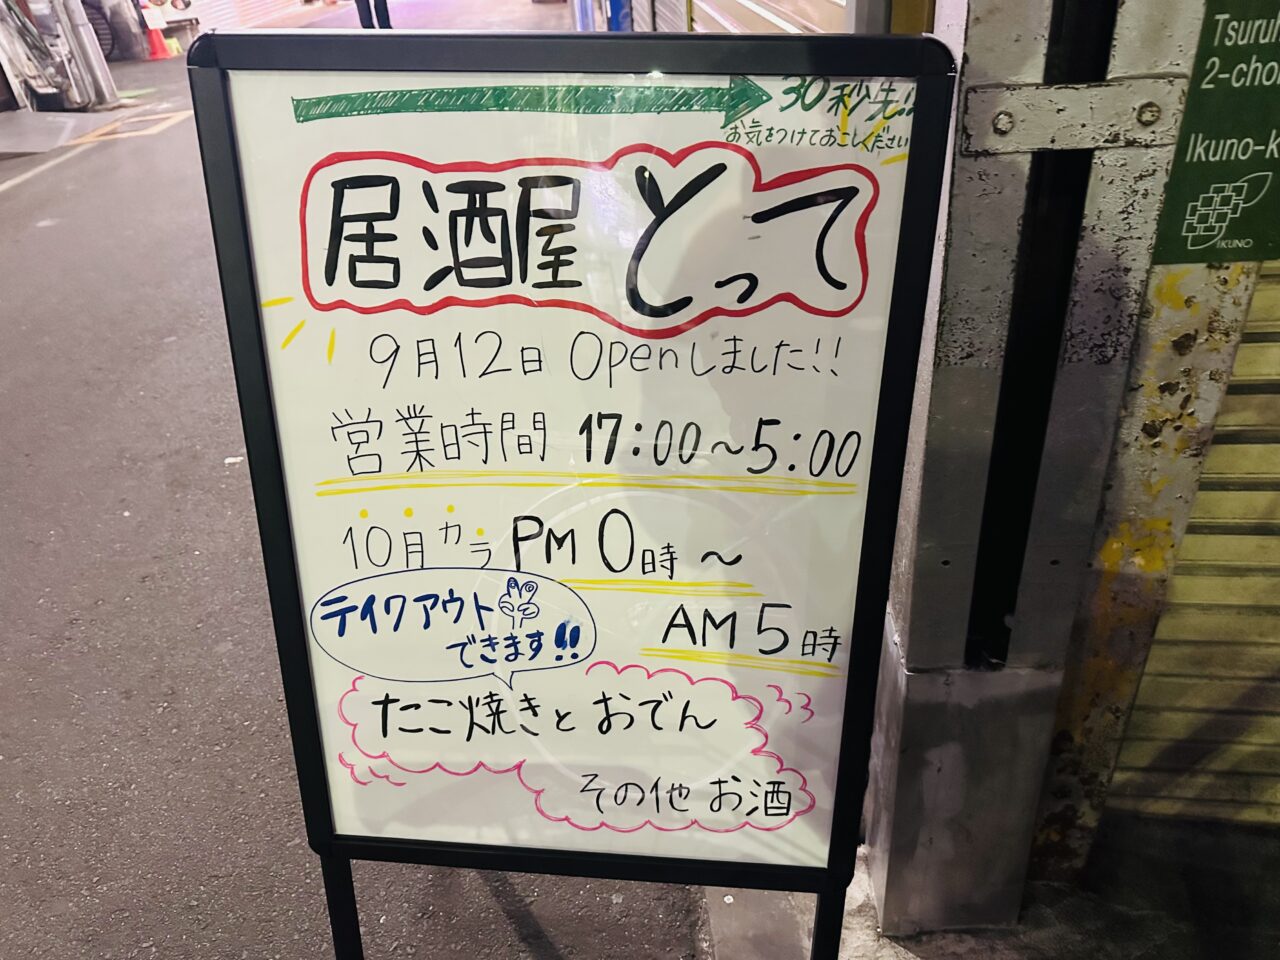 30秒先!!
お気をつけておこしください
居酒屋 とって
9月12日 Openしました!!
営業時間 17:00~5:00
10月カラ PM 0時~
AM 5時
テイクアウト
できます!!
たこ焼きと おでん
その他 お酒
2-cho
Ikuno-k
IKUNO